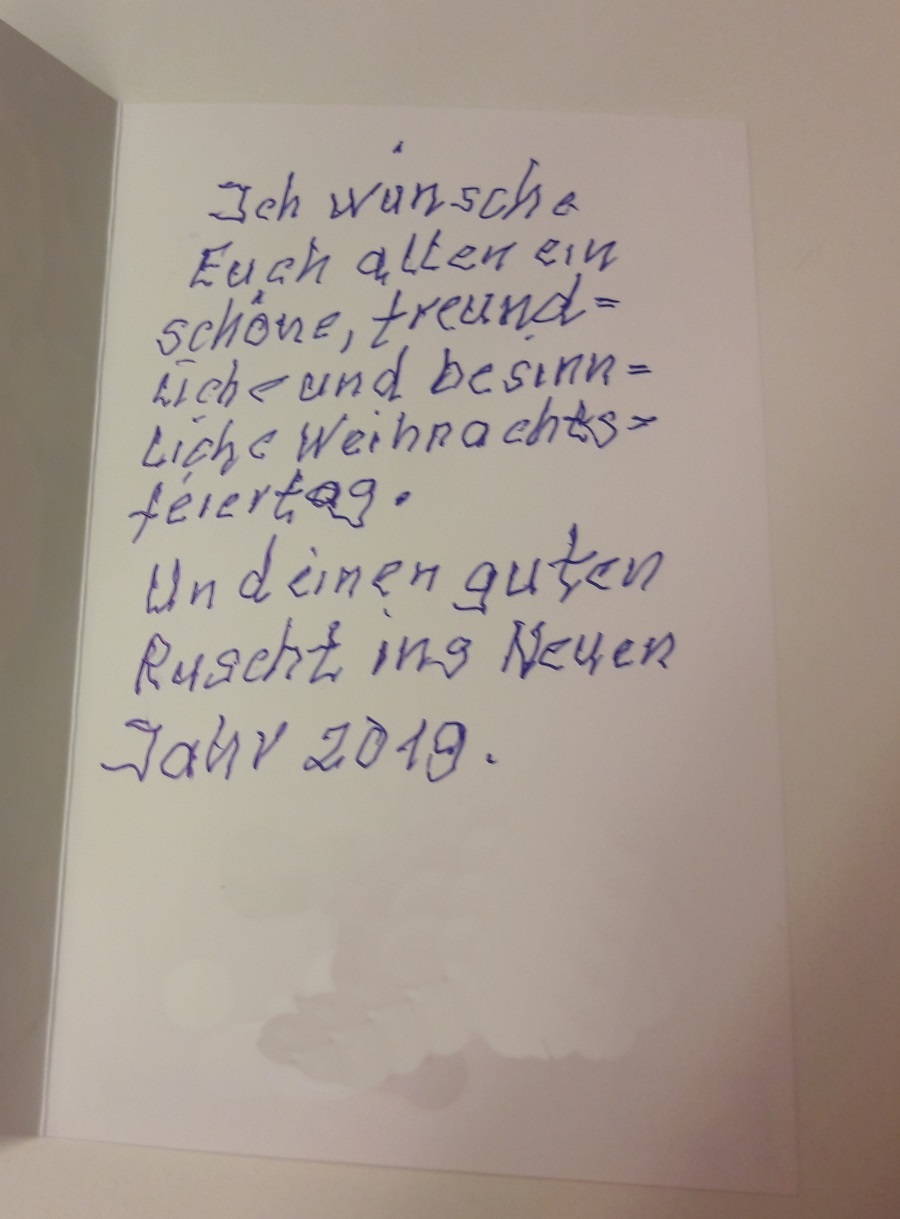 Ich wünsche
Euch allen ein
schöne, freund=
liche und besinn=
liche Weihnachts=
feiertag.
Und einen guten
Ruscht ins Neuen
Jahr 2019.